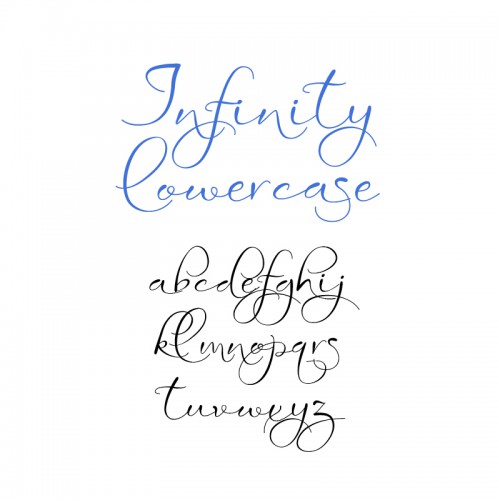 Infinity
lowercase
abcdefghij
klmnopqrs
tuvwxyz